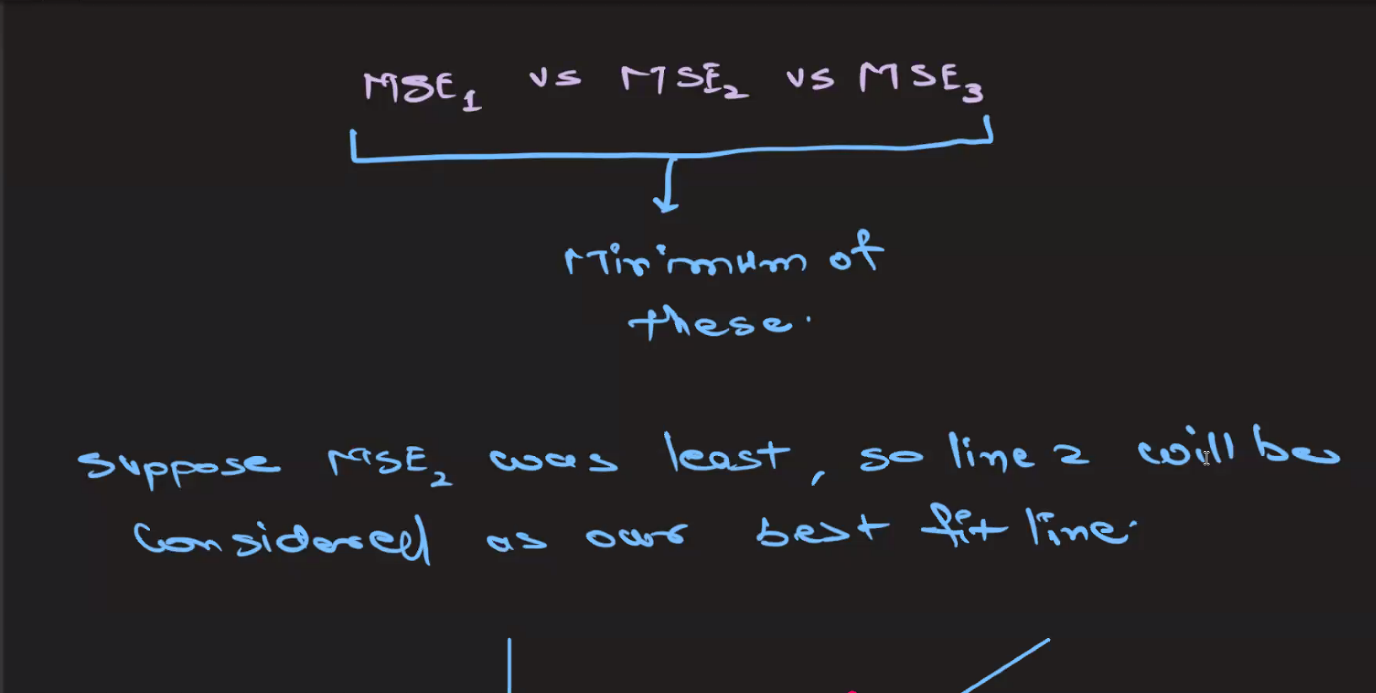 MSE₁ vs MSE₂ vs MSE₃
Minimum of
these.
suppose MSE₂ was least, so line 2 will be
considered as our best fit line.